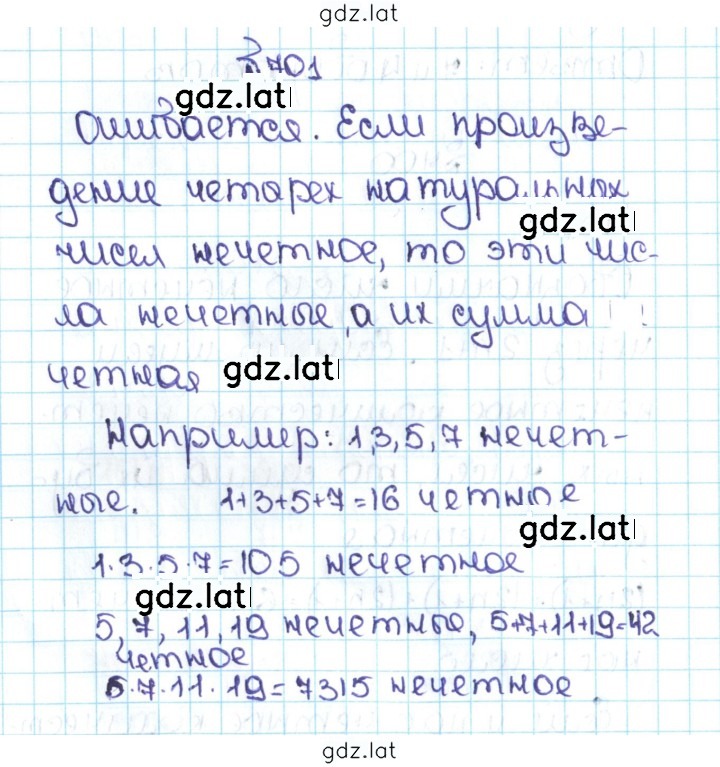 gdz.lat
701
gdz.lat
Ошибается. Если произве-
дение четарех натуральных
gdz.lat
чисел нечетное, то эти чис-
ла нечетные, а их сумма
четная gdz.lat
Например: 1,3,5,7 нечет-
ные. 1+3+5+7=16 четные
gdz.lat
1·3·5·7=105 нечетное
gdz.lat
5, 7, 11, 19 нечетные, 5+7+11+19=42
четное
5·7·11·19=7315 нечетное
gdz.lat